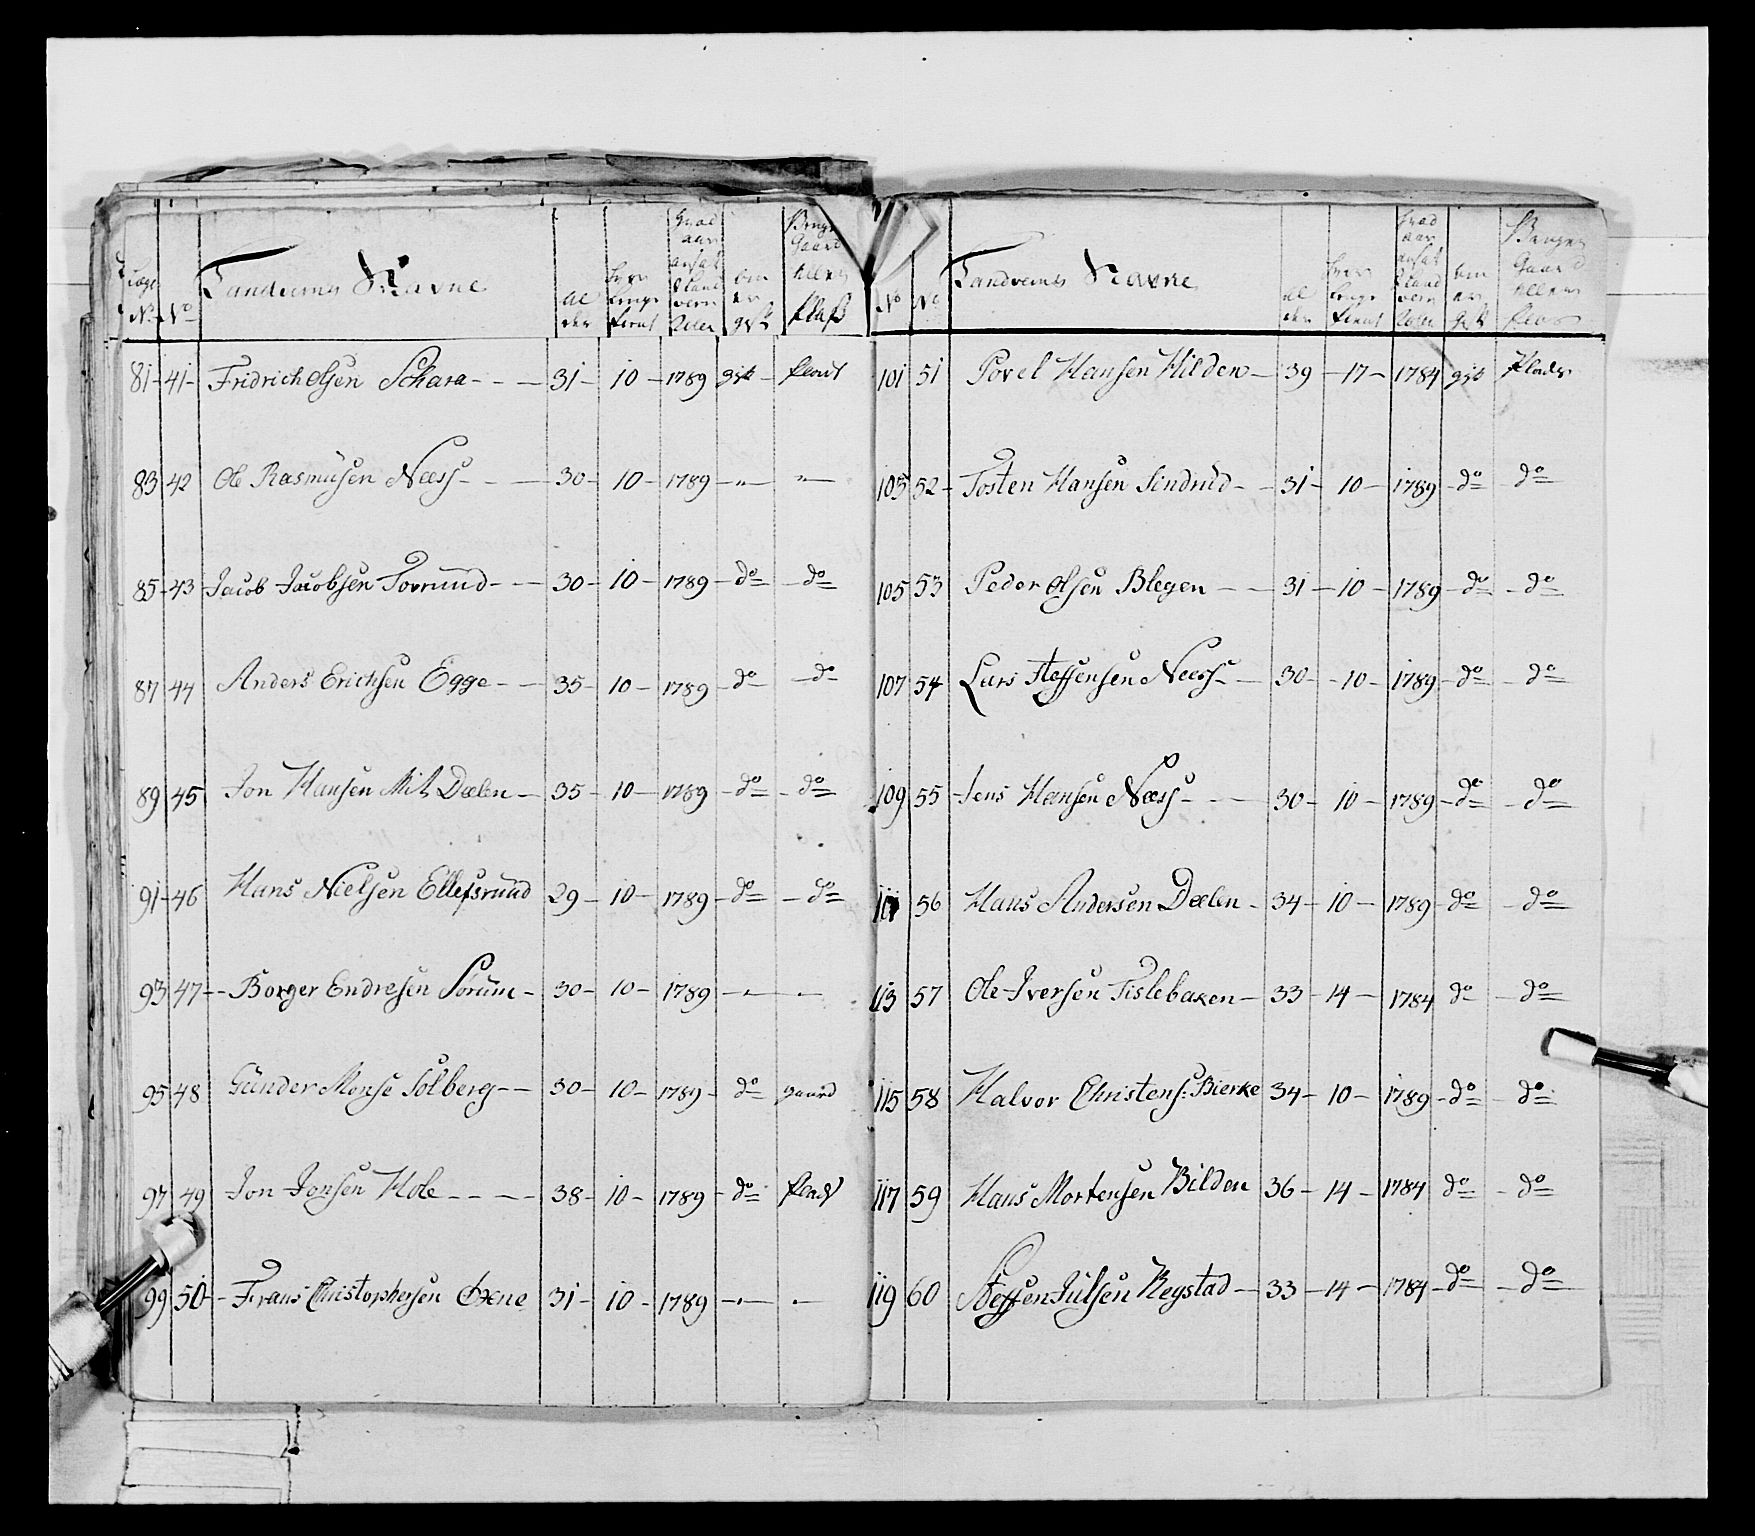 No No Landverns Navne al der hvor lenge tient hvad aar ansat Land vern Rullen om er gift Bruger Gaard eller Plads
81 - 41 - Fridrich Olsen Schara - - - 31 - 10 - 1789 gift - Plads
83 42 Ole Rasmusen Næss - - - 30 - 10 - 1789 - " - " -
85 - 43 - Jacob Jacobsen Torrund - - - 30 - 10 - 1789 - do - do
87 44 Anders Erichsen Egge - - 35 - 10 - 1789 - do - do
89 45 Jon Hansen Mit Dælen - 35 - 10 - 1789 - do - do
91 - 46 Hans Nielsen Ellefsrund 29 - 10 - 1789 - do - do
93 47 - Borger Endresen Sørum - 30 - 10 - 1789 - " - " -
95 48 Gunder Monse Solberg - - 30 - 10 - 1789 - do gaard
97 49 Jon Jonsen Hole - - - - 38 - 10 - 1789 - do Plads
99 50 - Frans Christophersen Oxne 31 - 10 - 1789 - " - " -
No No Landverns Navne al der hvor lenge tient hvad aar ansat Land vern Rullen om er gift Bruger Gaard eller Plas
101 51 Povel Hansen Hilden - 39 - 17 - 1784 gift Plads
103 52 - Tosten Hansen Sindrud - - 31 - 10 - 1789 - do - do
105 53 Peder Olsen Blegen - - 31 - 10 - 1789 - do - do
107 54 Lars Steffensen Næss - - 30 - 10 - 1789 - do - do
109 55 - Jens Hansen Næss - - - 30 - 10 - 1789 - do - do
111 56 Hans Andersen Dælen - 34 - 10 - 1789 - do - do
113 57 Ole Iversen Tislebaxen - 33 - 14 - 1784 do - do
115 58 Halvor Christens: Bierke 34 - 10 - 1789 - do - do
117 59 Hans Mortensen Bilden 36 - 14 - 1784 do - do
119 60 Steffen JulsenRegstad - 33 - 14 - 1784 - do - do